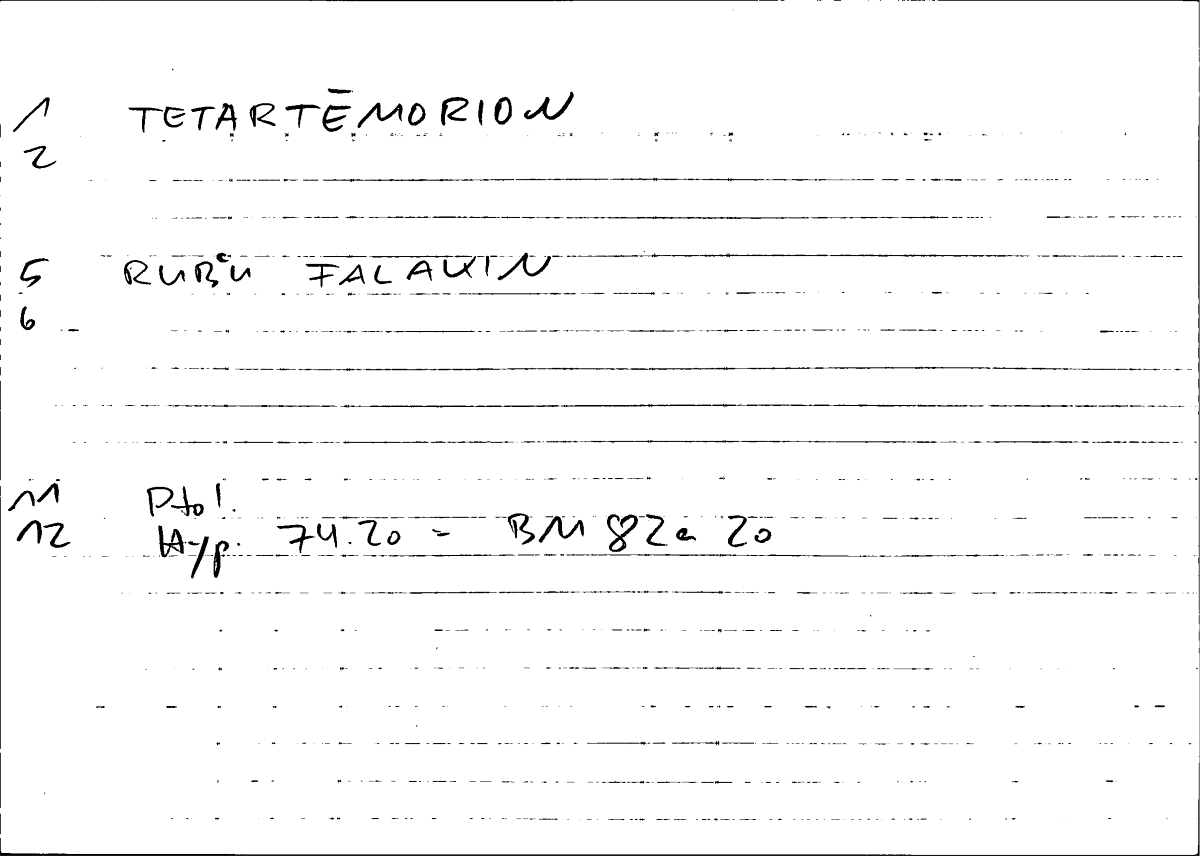 1 TETARTĒMORION
2
5 RUBʿU FALAKIN
6
11 Ptol.
12 Hyp. 74.20 = BM 82a 20